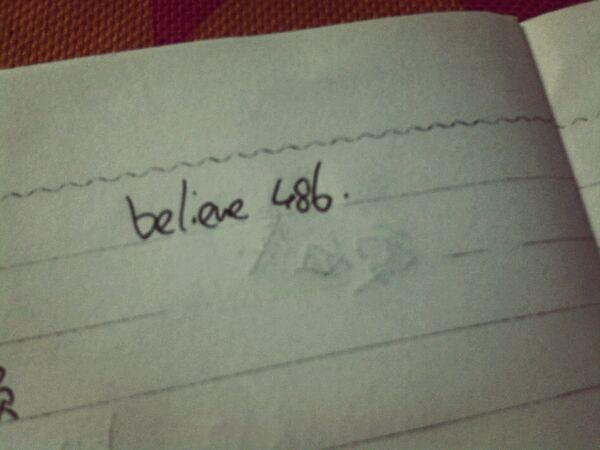 believe 486.